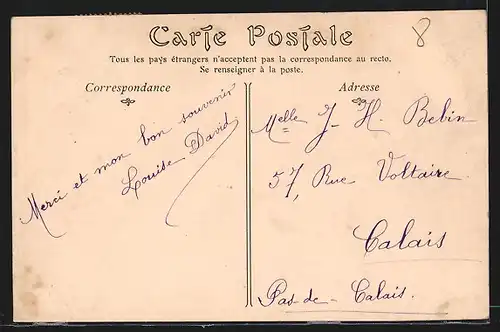 Carte Postale
8
Tous les pays étrangers n'acceptent pas la correspondance au recto.
Se renseigner à la poste.
Correspondance
Merci et mon bon souvenir
Louise David
Adresse
Melle J- H- Bebin
57, Rue Voltaire
Calais
Pas-de-Calais.